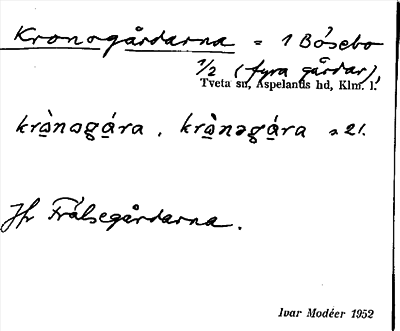 Kronogårdarna = 1 Bösebo
1/2 (fyra gårdar),
Tveta sn, Aspelands hd, Klm. l.
krònogára, krònəgára = 21.
Jfr Frälsegårdarna.
Ivar Modéer 1952